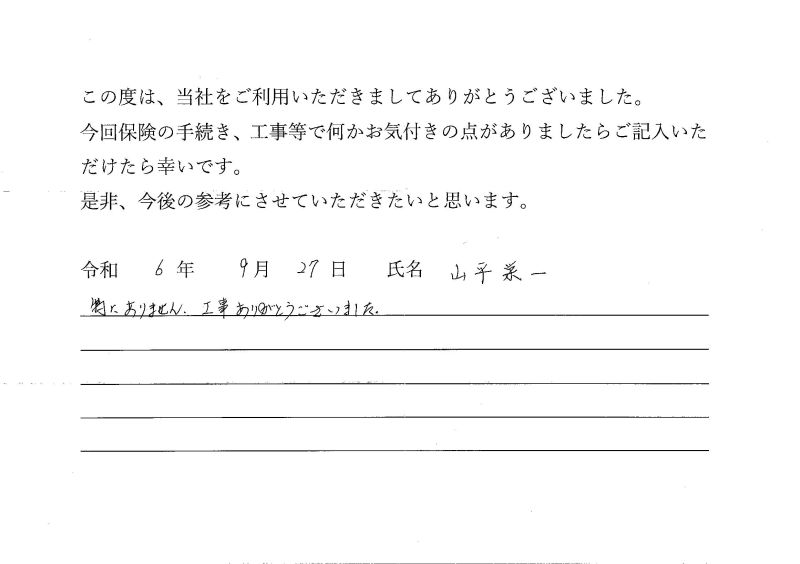 この度は、当社をご利用いただきましてありがとうございました。
今回保険の手続き、工事等で何かお気付きの点がありましたらご記入いた
だけたら幸いです。
是非、今後の参考にさせていただきたいと思います。
令和 6 年 9 月 27 日 氏名 山平 一
特にありません。工事ありがとうございました。